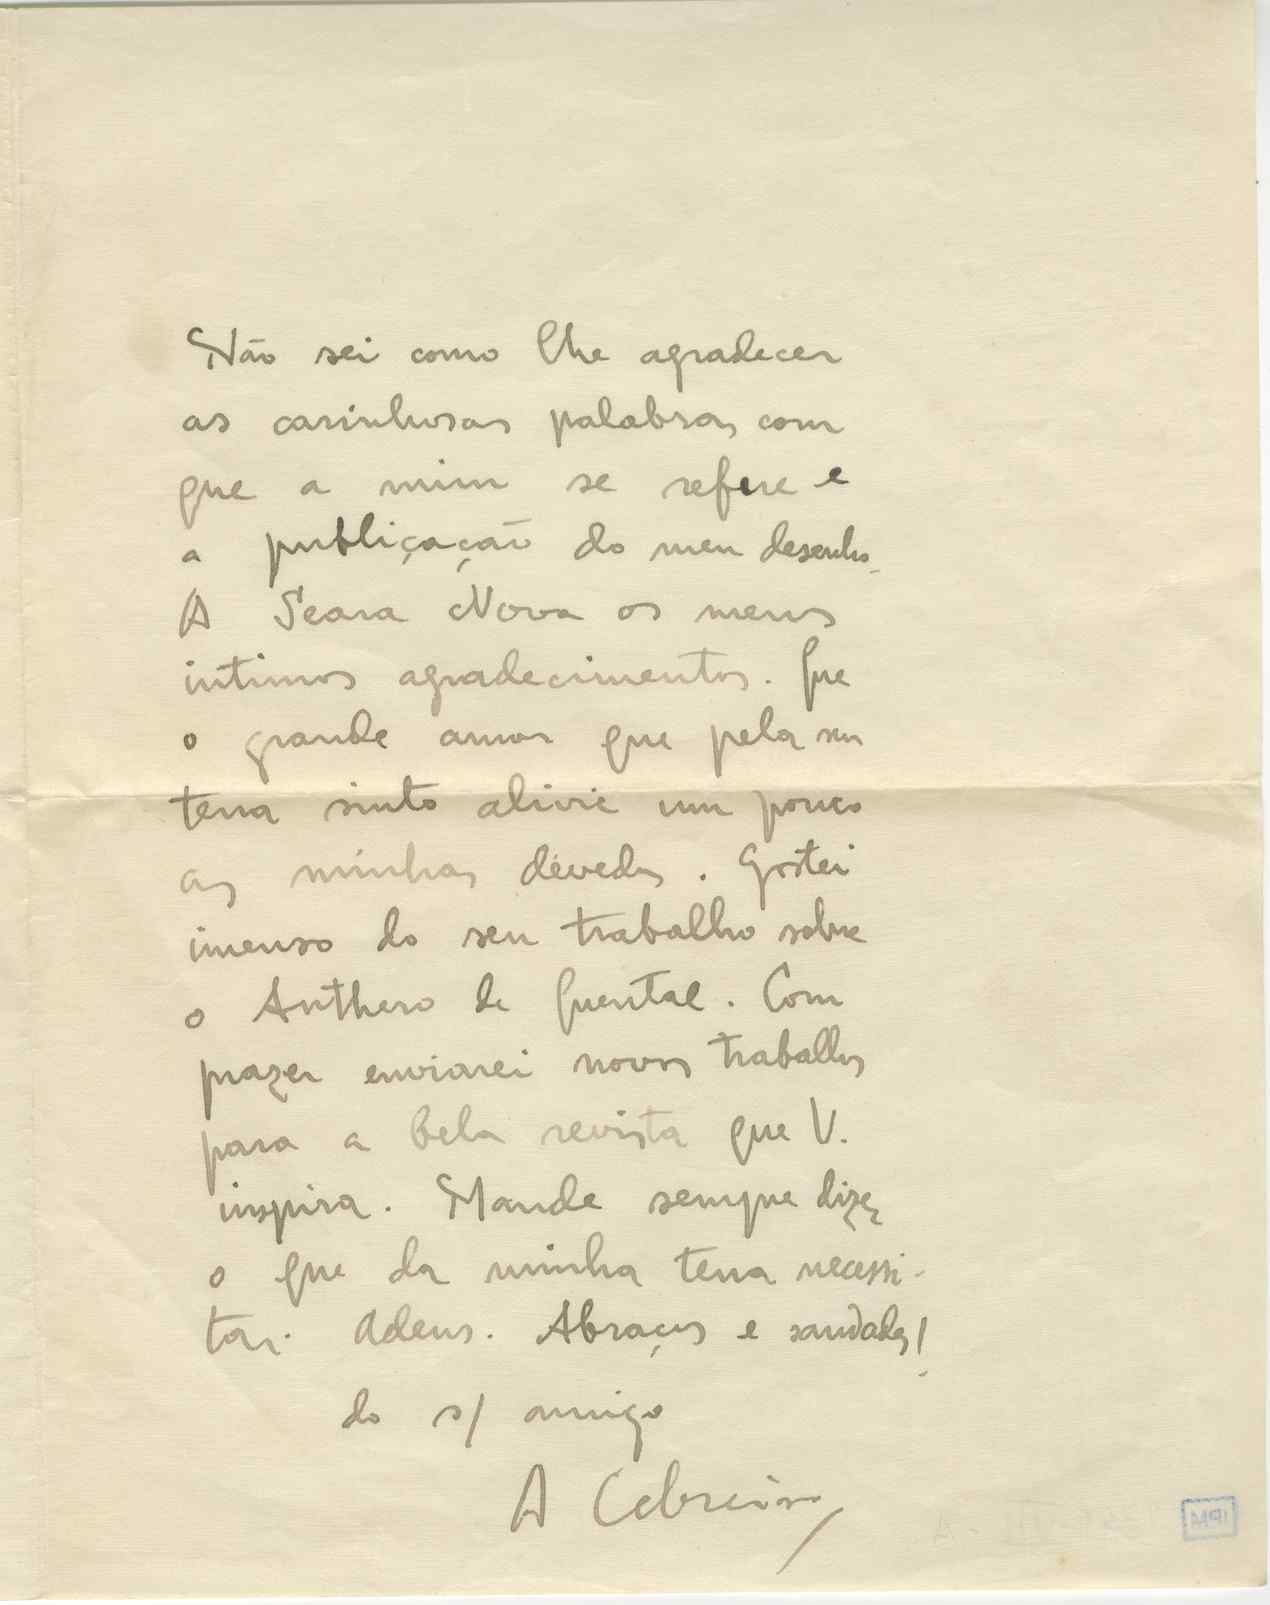 Não sei como lhe agradecer
as carinhosas palabras com
que a mim se refere e
a publiçação do meu desenho.
A Seara Nova os meus
intimos agradecimentos. Que
o grande amor que pela sua
terra sinto alivie um pouco
as minhas dévedas. Gostei
imenso do seu traballio sobre
o Anthero de Quental. Com
prazer enviarei novos traballos
para a bela revista que V.
inspira. Mande sempre dizer
o que da minha terra necessi-
tar. Adeus. Abraços e saudades!
do s/ amigo
A Cebreiro
IPM